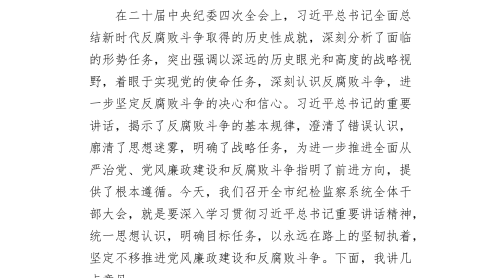 在二十届中央纪委四次全会上，习近平总书记全面总
结新时代反腐败斗争取得的历史性成就，深刻分析了面临
的形势任务，突出强调以深远的历史眼光和高度的战略视
野，着眼于实现党的使命任务，深刻认识反腐败斗争，进
一步坚定反腐败斗争的决心和信心。习近平总书记的重要
讲话，揭示了反腐败斗争的基本规律，澄清了错误认识，
廓清了思想迷雾，明确了战略任务，为进一步推进全面从
严治党、党风廉政建设和反腐败斗争指明了前进方向，提
供了根本遵循。今天，我们召开全市纪检监察系统全体干
部大会，就是要深入学习贯彻习近平总书记重要讲话精神，
统一思想认识，明确目标任务，以永远在路上的坚韧执着，
坚定不移推进党风廉政建设和反腐败斗争。下面，我讲几
点意见